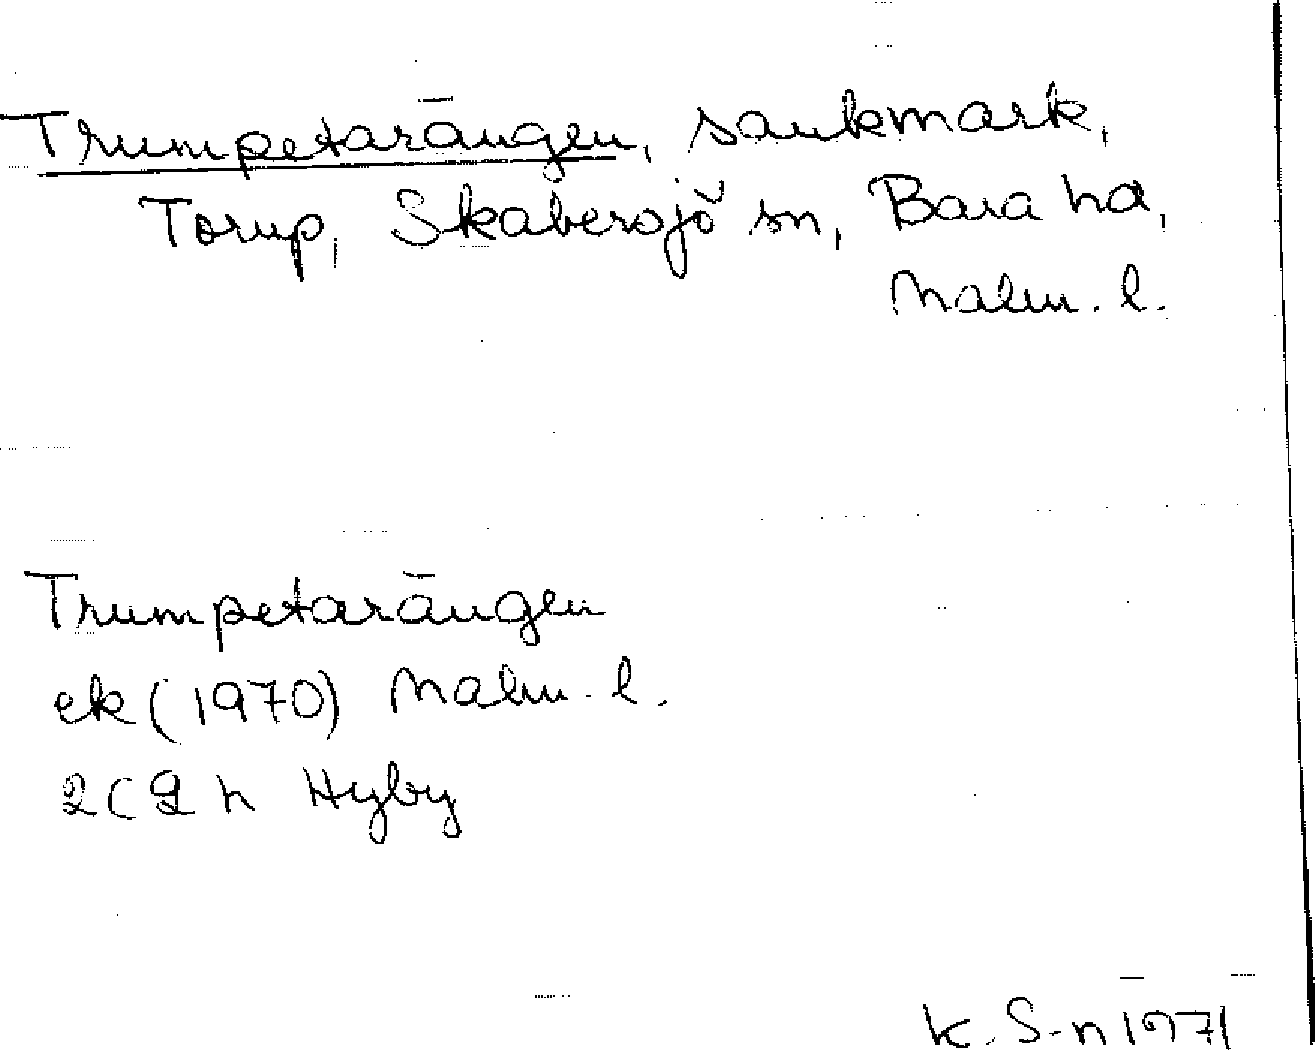 Trumpetarängen, sankmark,
Torup, Skabersjö sn, Bara hd,
Malm. l.
Trumpetarängen
ek (1970) Malm. l.
2C 9h Hyby
K. S-n 1971